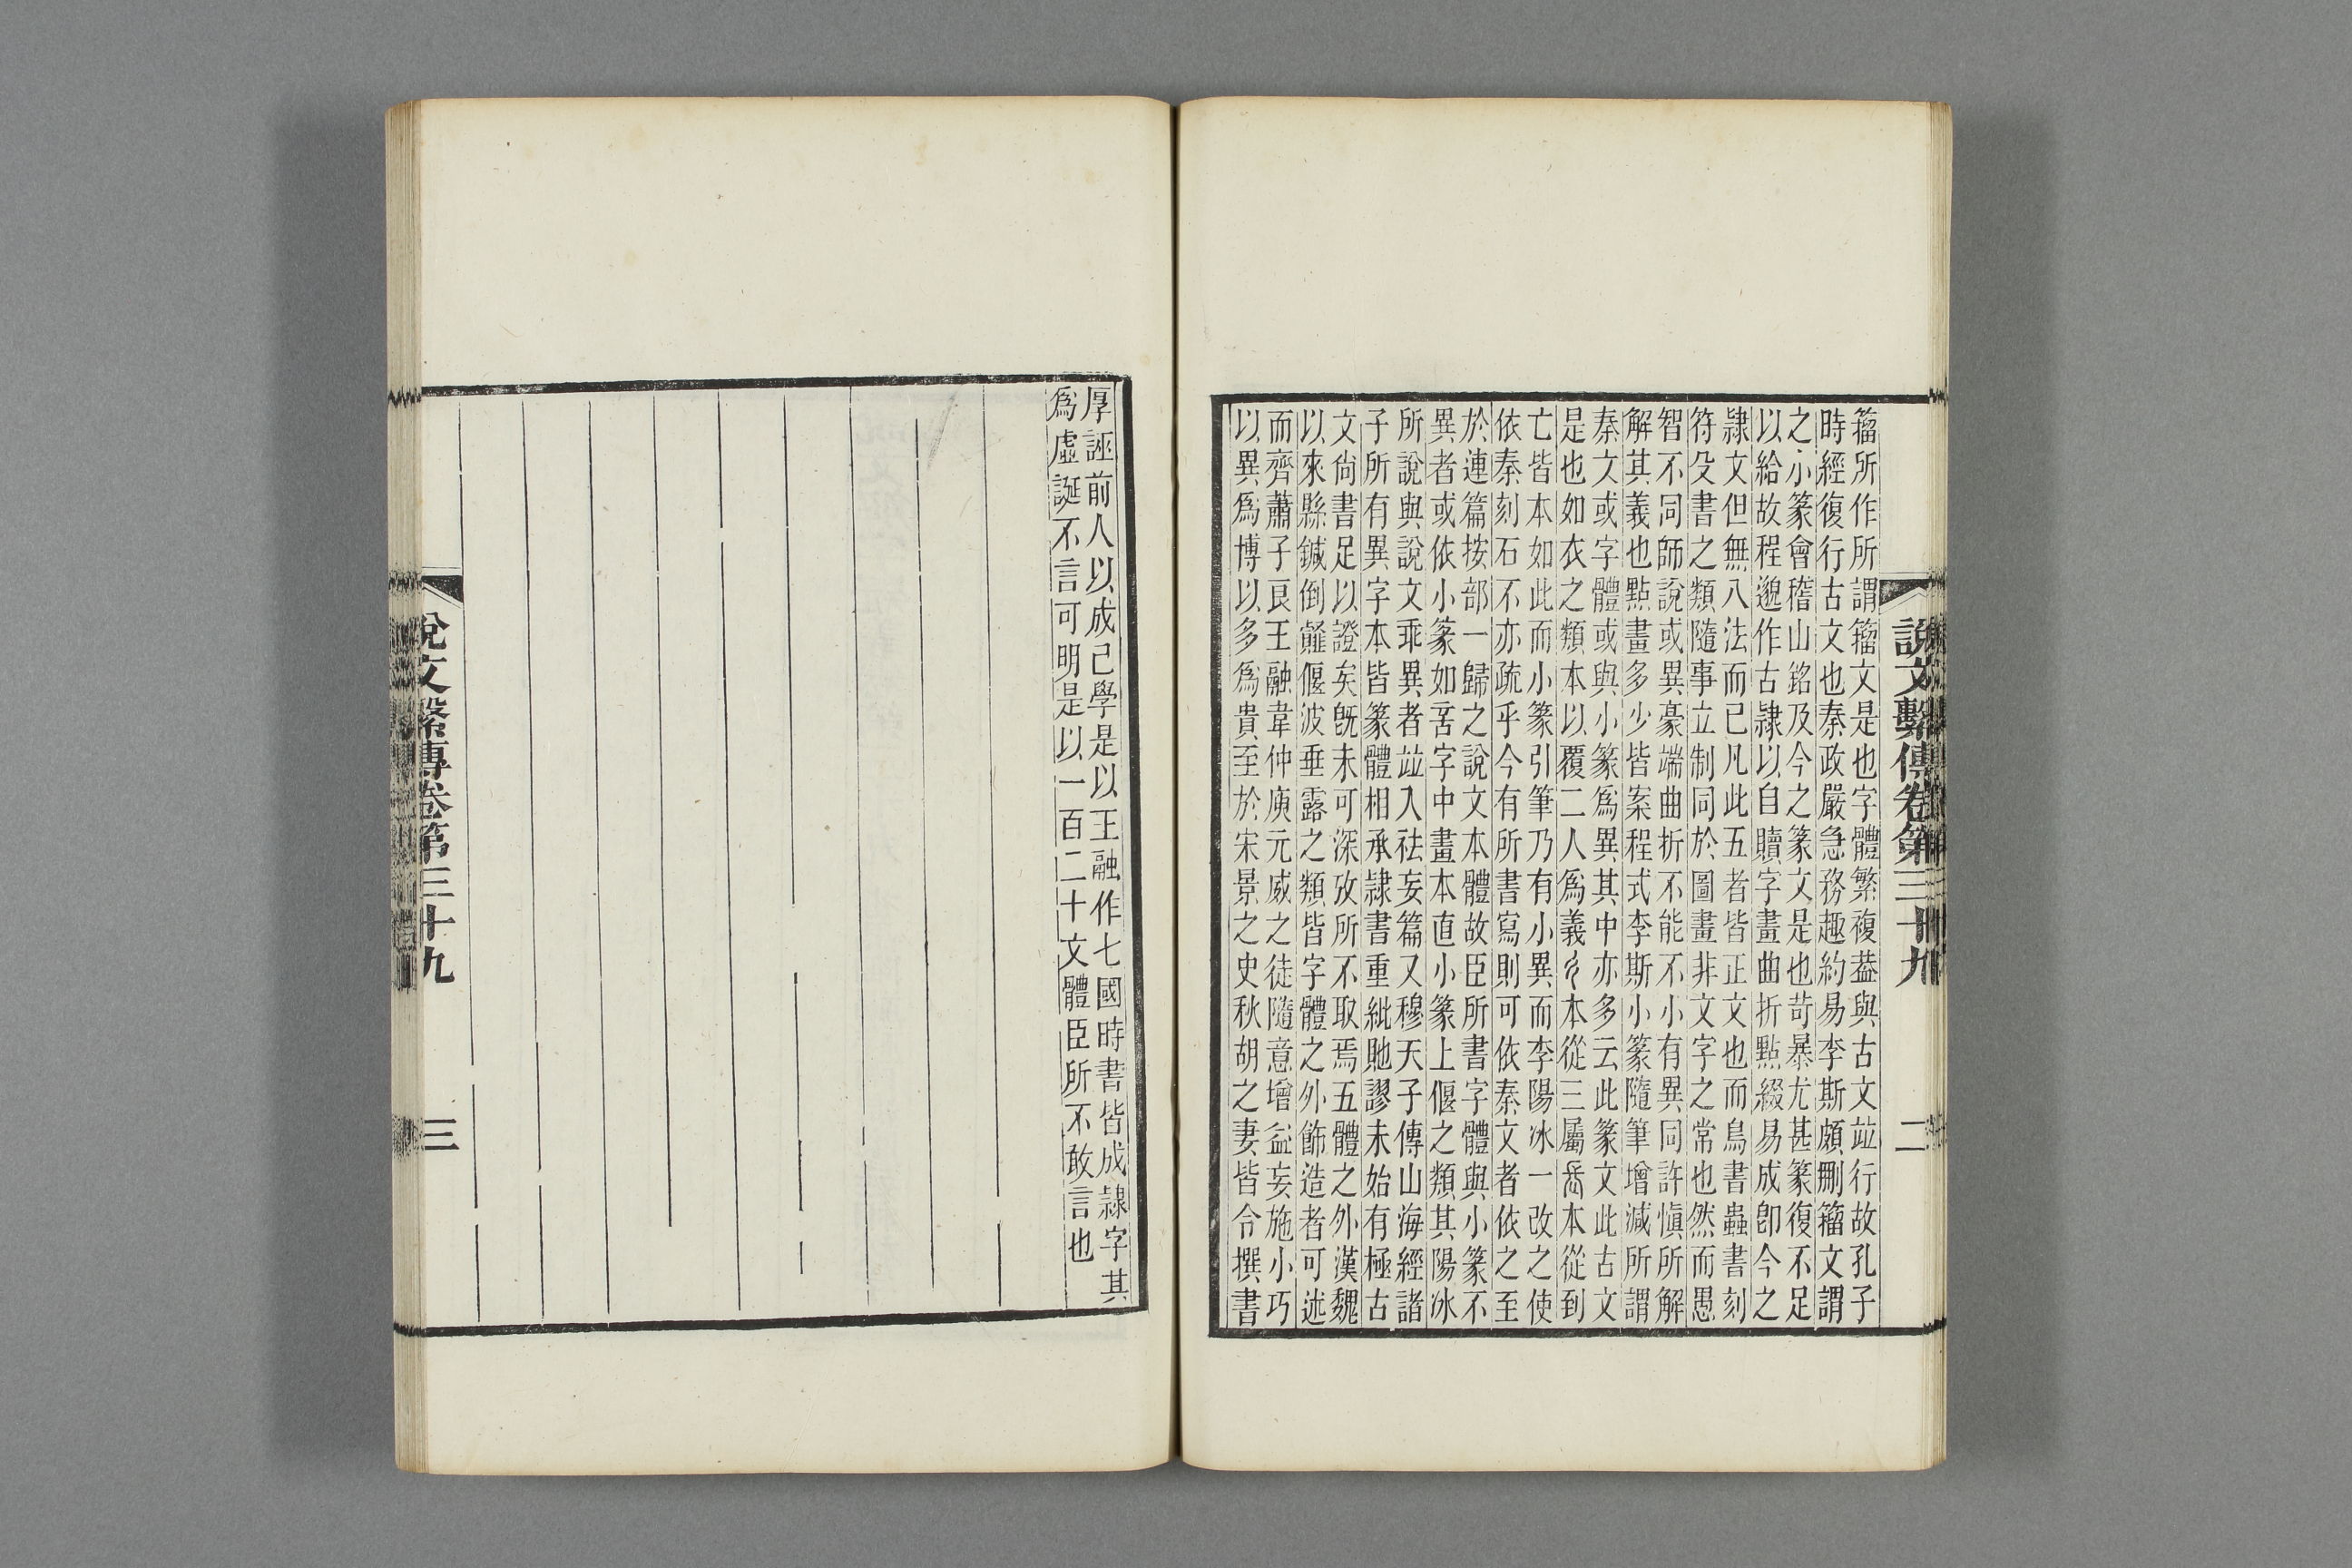 說文繫傳卷第三十九
二
籀所作所謂籀文是也字體繁複葢與古文竝行故孔子
時經復行古文也秦政嚴急務趣約易李斯頗刪籀文謂
之小篆會稽山銘及今之篆文是也苛暴尤甚篆復不足
以給故程邈作古隷以自贖字畫曲折點綴易成卽今之
隷文但無八法而已凡此五者皆正文也而鳥書蟲書刻
符殳書之類隨事立制同於圖畫非文字之常也然而愚
智不同師說或異豪端曲折不能不小有異同許愼所解
解其義也點畫多少皆案程式李斯小篆隨筆增減所謂
秦文或字體或與小篆爲異其中亦多云此篆文此古文
是也如衣之類本以覆二人爲義本從三屬本從到
亡皆本如此而小篆引筆乃有小異而李陽冰一改之使
依秦刻石不亦疏乎今有所書寫則可依秦文者依之至
於連篇按部一歸之說文本體故臣所書字體與小篆不
異者或依小篆如字中畫本直小篆上偃之類其陽冰
所說與說文乖異者竝入祛妄篇又穆天子傳山海經諸
子所有異字本皆篆體相承隷書重紕貤謬未始有極古
文尙書足以證矣旣未可深攷所不取焉五體之外漢魏
以來縣鍼倒薤偃波垂露之類皆字體之外飾造者可述
而齊蕭子良王融韋仲庾元威之徒隨意增益妄施小巧
以異爲博以多爲貴至於宋景之史秋胡之妻皆令撰書
厚誣前人以成己學是以王融作七國時書皆成隷字其
爲虛誕不言可明是以一百二十文體臣所不敢言也
說文繫傳卷第三十九
三